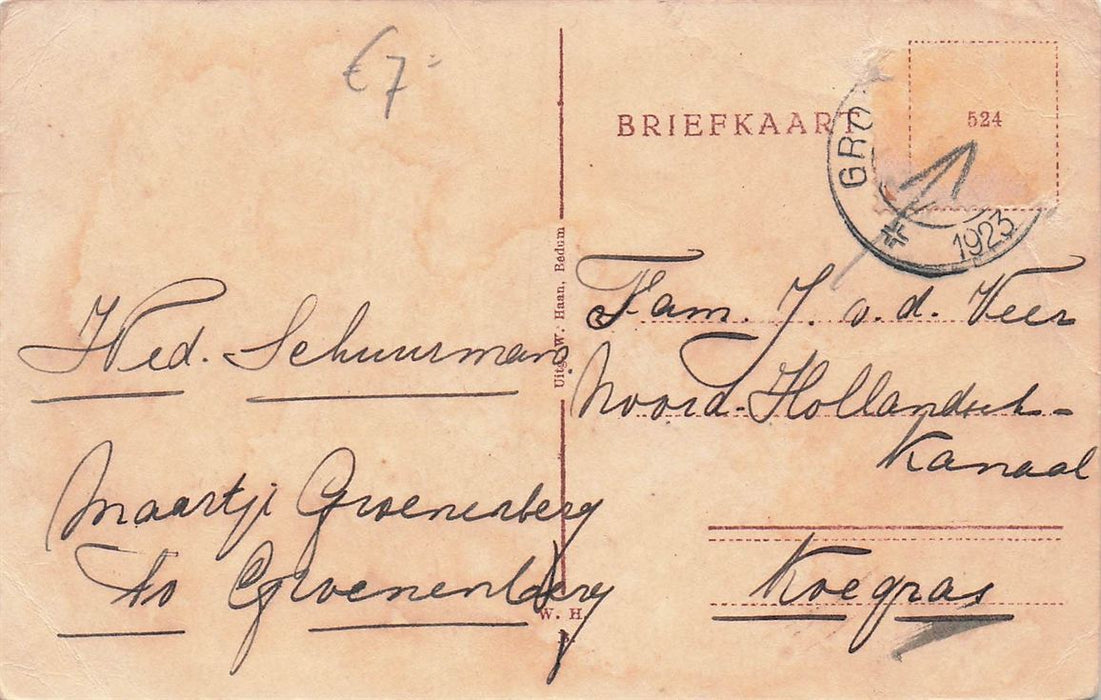 €7=
BRIEFKAART
524
GRO
1923
1
Uitg. W. Haan, Bedum
Wed. Schuurman
Maartje Groenenberg
To Groenenberg
Fam. J. v. d. Veer
Noord-Hollandsch-
Kanaal
Koegras
W. H.